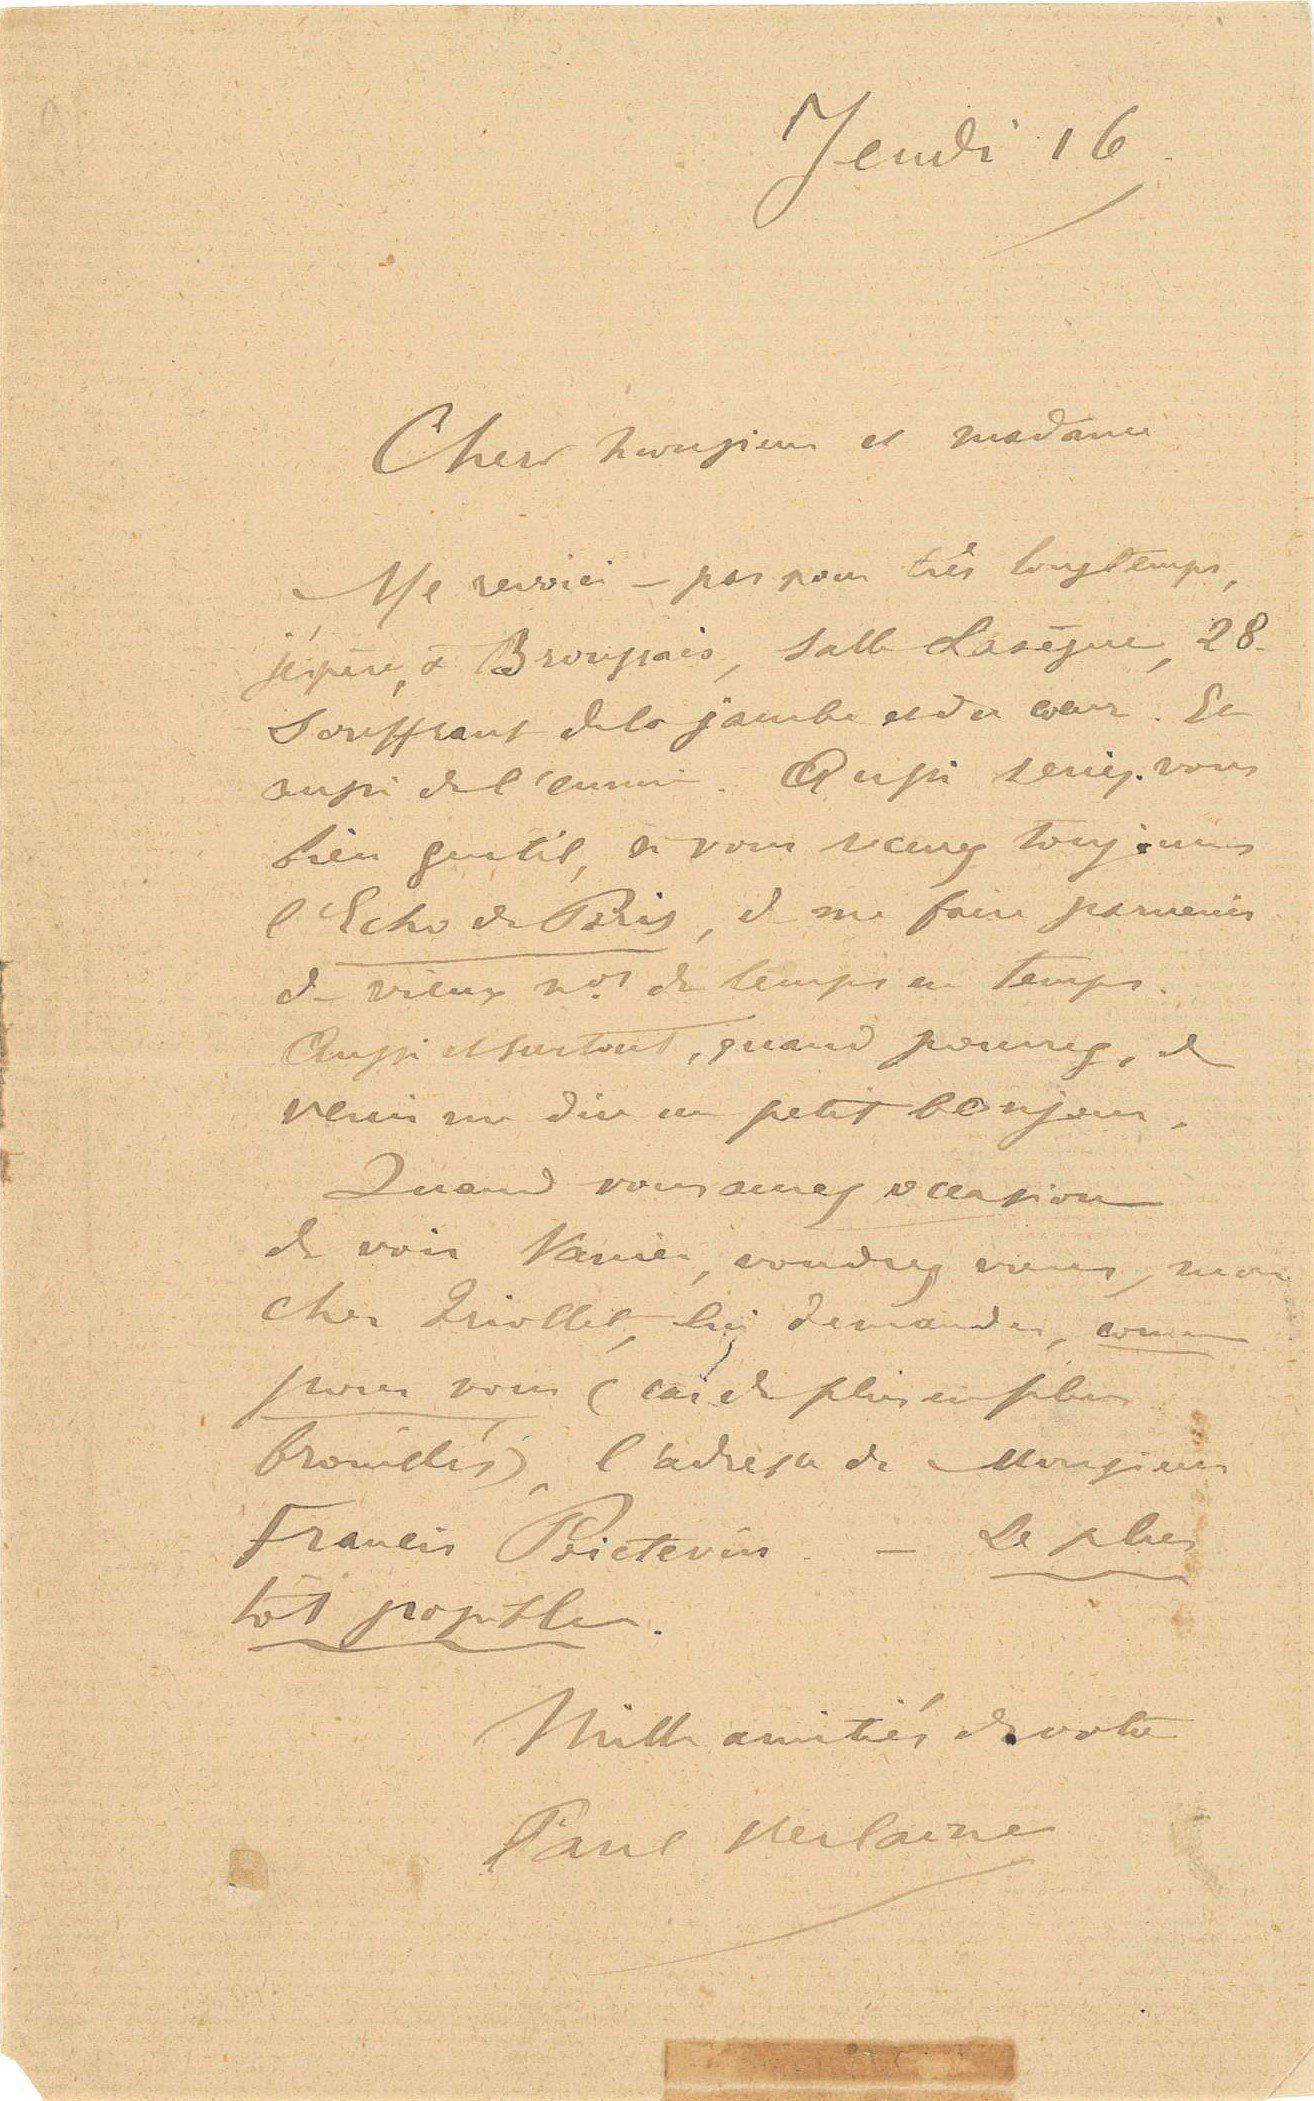 Jeudi 16
Chers monsieur et madame
Me revoici – pas pour très longtemps,
j'espère, à Broussais, salle Lasègue, 28.
Souffrant de la jambe et du cœur. Et
aussi de l'ennui. Aussi seriez-vous
bien gentil, si vous recevez toujours
l'Echo de Paris, de me faire parvenir
de vieux nos. de temps en temps.
Aussi et surtout, quand pourrez, de
venir me dire un petit bonjour.
Quand vous aurez occasion
de voir Vanier, voudrez vous, mon
cher Griollet, lui demander, comme
pour vous (car de plus en plus
brouillés), l'adresse de Monsieur
Francis Poictevin. – Le plus
tôt possible.
Mille amitiés de votre
Paul Verlaine